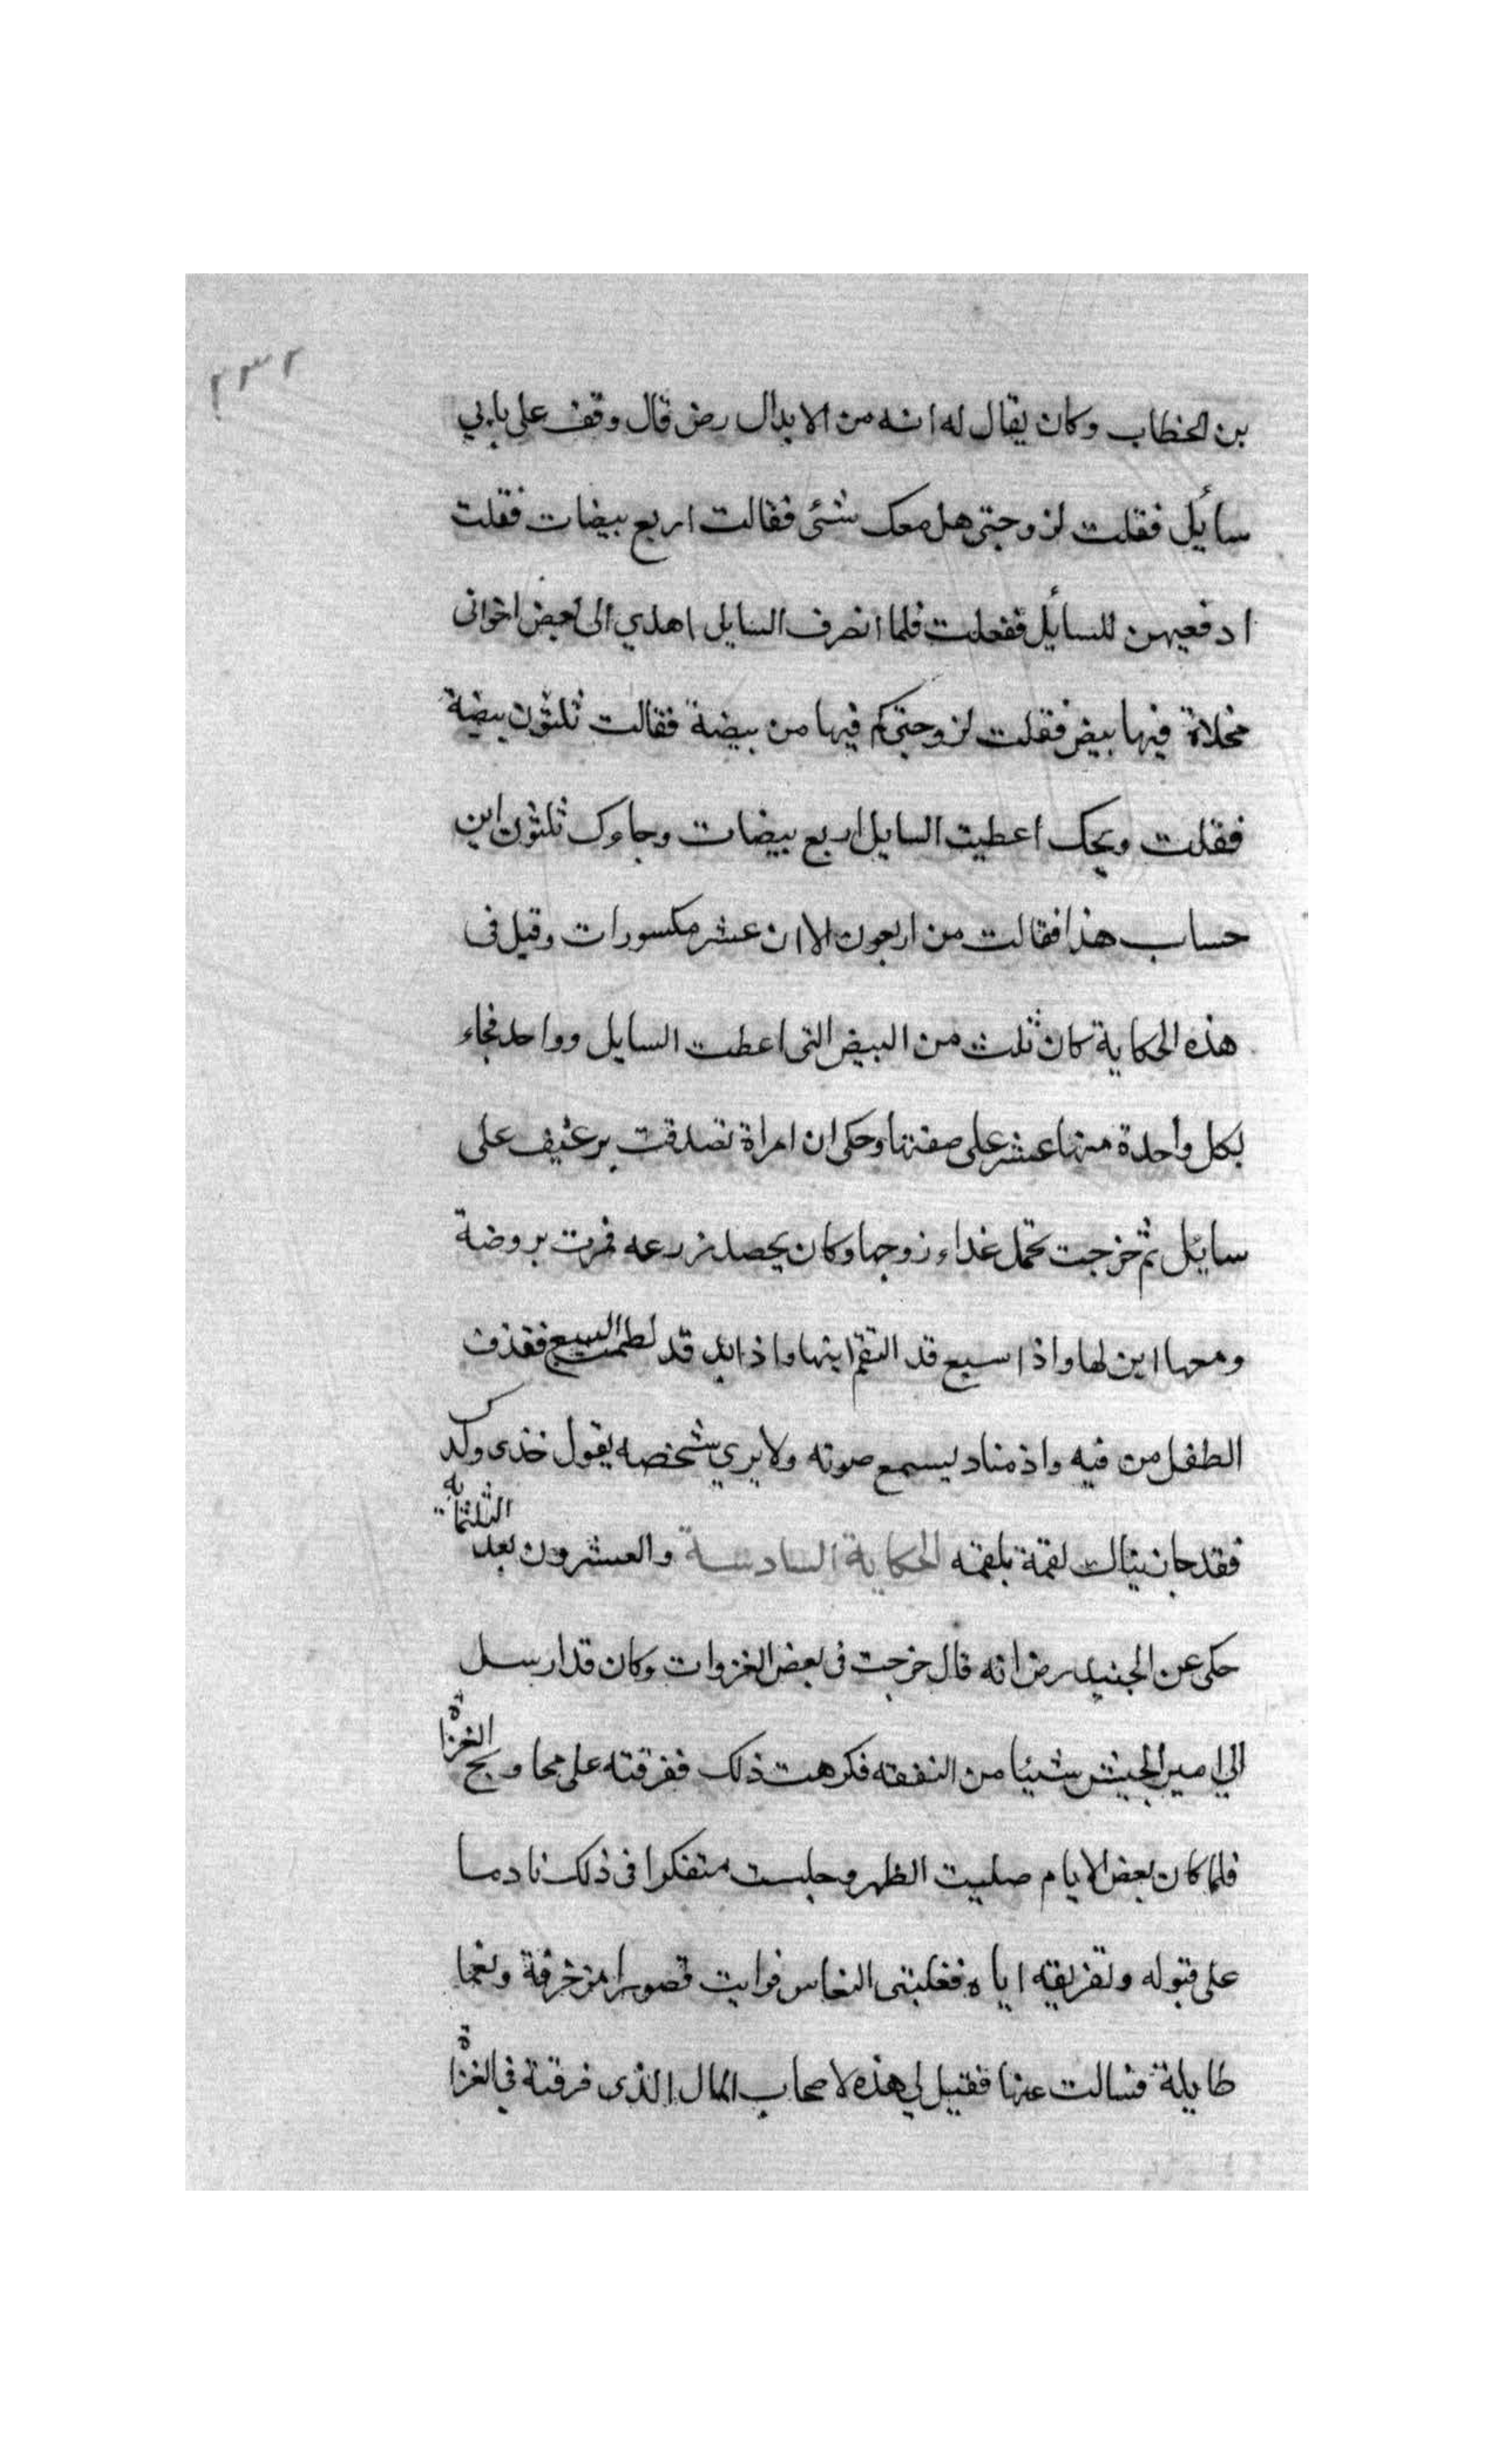 ٢٣٢
بن الخطاب وكان يقال له انه من الابدال رض قال وقف على بابي
سائيل فقلت لزوجتى هل معك شئ فقالت اربع بيضات فقلت
ادفعيهن للسائيل ففعلت فلما انصرف السايل اهدي الى بعض اخوانى
مخلاة فيها بيض فقلت لزوجتى كم فيها من بيضة فقالت ثلثون بيضة
فقلت ويحك اعطيت السايل اربع بيضات وجاوك ثلثون اين
حساب هذا فقالت من اربعون الا ان عشر مكسورات وقيل فى
هذه الحكاية كان ثلث من البيض التى اعطت السايل وواحد فجاء
بكل واحدة منها عشر على صفتها وحكى ان امراة تصدقت برغيف على
سايل ثم خرجت تحمل غداء زوجها وكان يحصد زرعه فمرت بروضة
ومعها ابن لها واذا سبع قد التقم ابنها واذا يد قد لطمت السبع فقذف
الطفل من فيه واذ مناد يسمع صوته ولا يري شخصه يقول خذى ولدك
فقد جازيناك لقمة بلقمه الحكاية السادسة والعشرون بعد الثلثمايه
حكى عن الجنيد رض انه قال خرجت فى بعض الغزوات وكان قد ارسل
الي امير الجيش شيئا من النفقه فكرهت ذلك ففرقته على محاويج الغزاة
فلما كان بعض الايام صليت الظهر وجلست متفكرا فى ذلك نادما
على قبوله وتفريقه اياه فغلبتنى النعاس فرايت قصورا مزخرفة ونعما
طايلة فسالت عنها فقيل لي هذه لاصحاب المال الذى فرقته في الغزاة